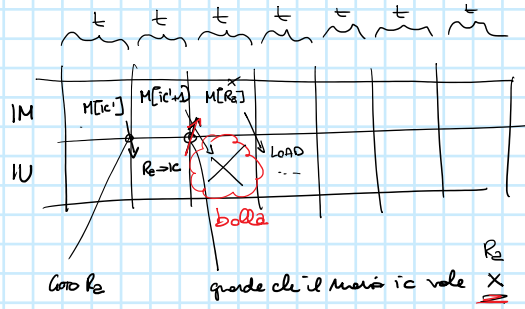 t t t t t t t
IM M[ic'] M[ic'+1] M[R2]
x
IU R2→IC LOAD
...
bolla
GOTO R2 guarda che il nuovo ic vale R2
X